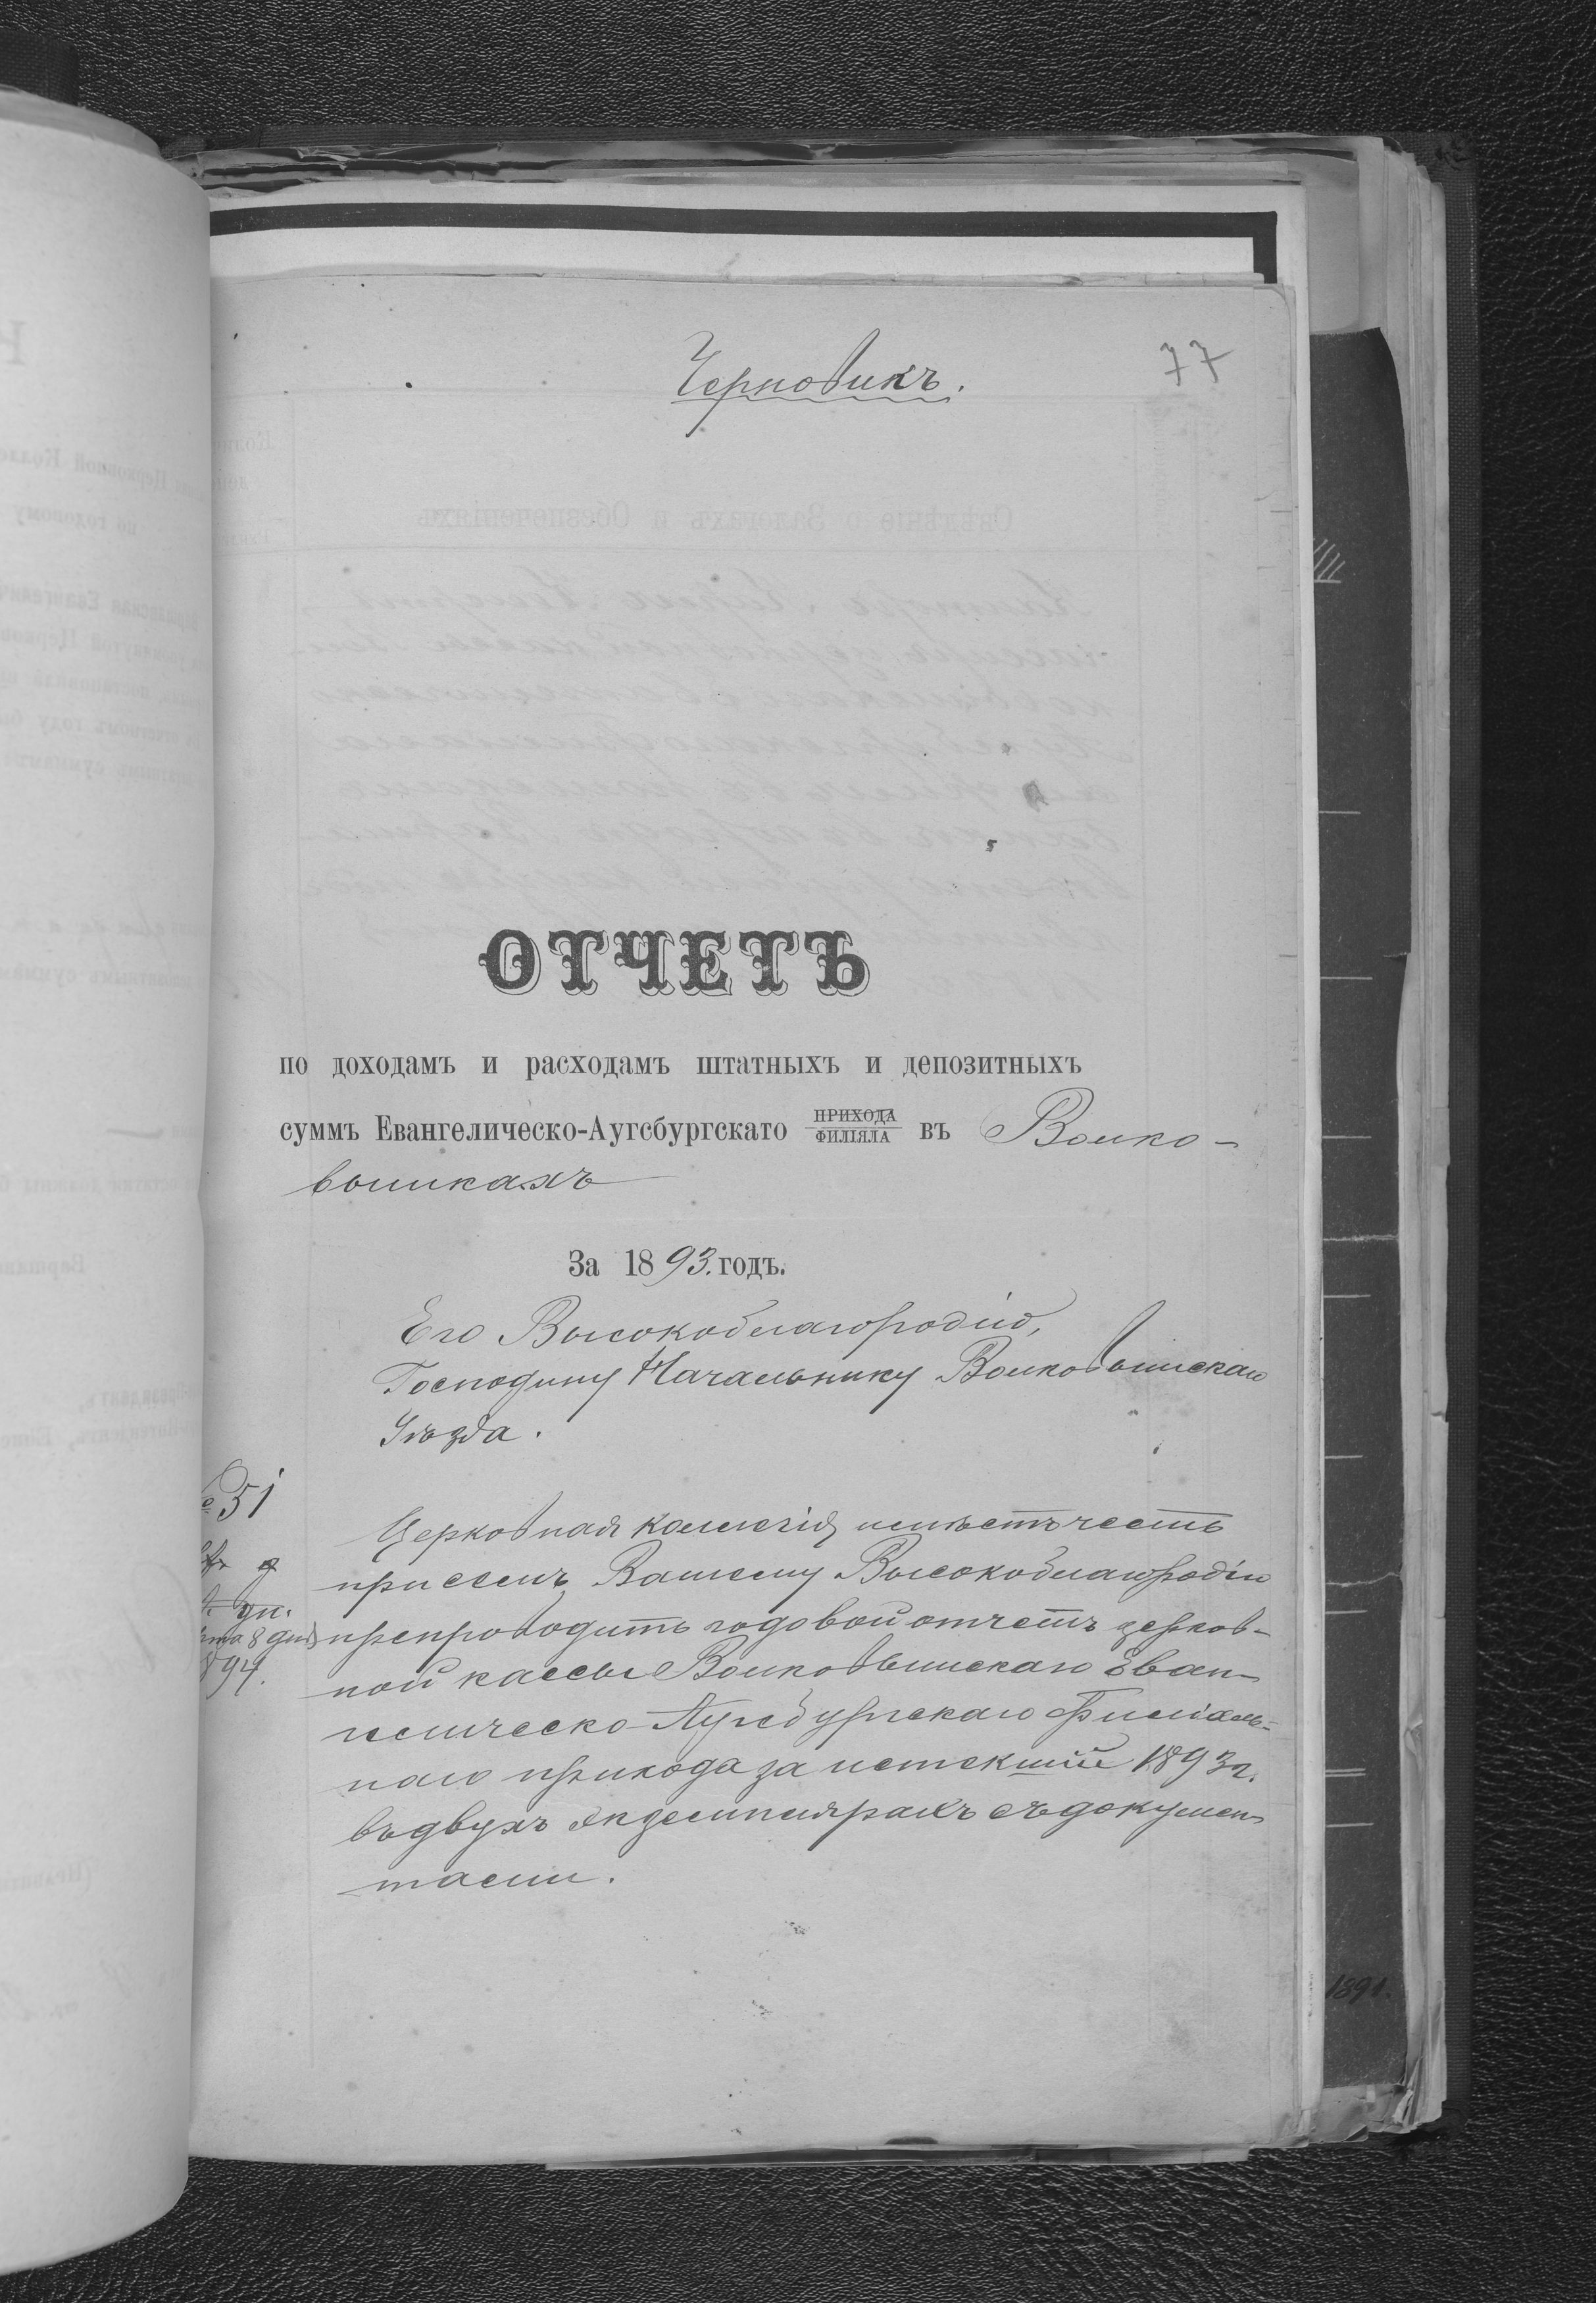 Черновикъ.
77
ОТЧЕТЪ
по доходамъ и расходамъ штатныхъ и депозитныхъ
суммъ Евангелическо-Аугсбургскато ПРИХОДА ФИЛІЯЛА въ Волко-
вышкахъ
За 1893. годъ.
Его Высокоблагородію,
Господину Начальнику Волковышскаго
Уѣзда.
№ 51
Церковная коллегія имѣетъ честь
при семъ Вашему Высокоблагородію
препроводить годовой отчетъ церков-
8 дня
894.
ной кассы Волковышскаго Еван-
гелическо-Аугсбургскаго Филіаль-
наго прихода за истекшій 1893 г.
въ двухъ экземплярахъ съ докумен-
тами.
1891.